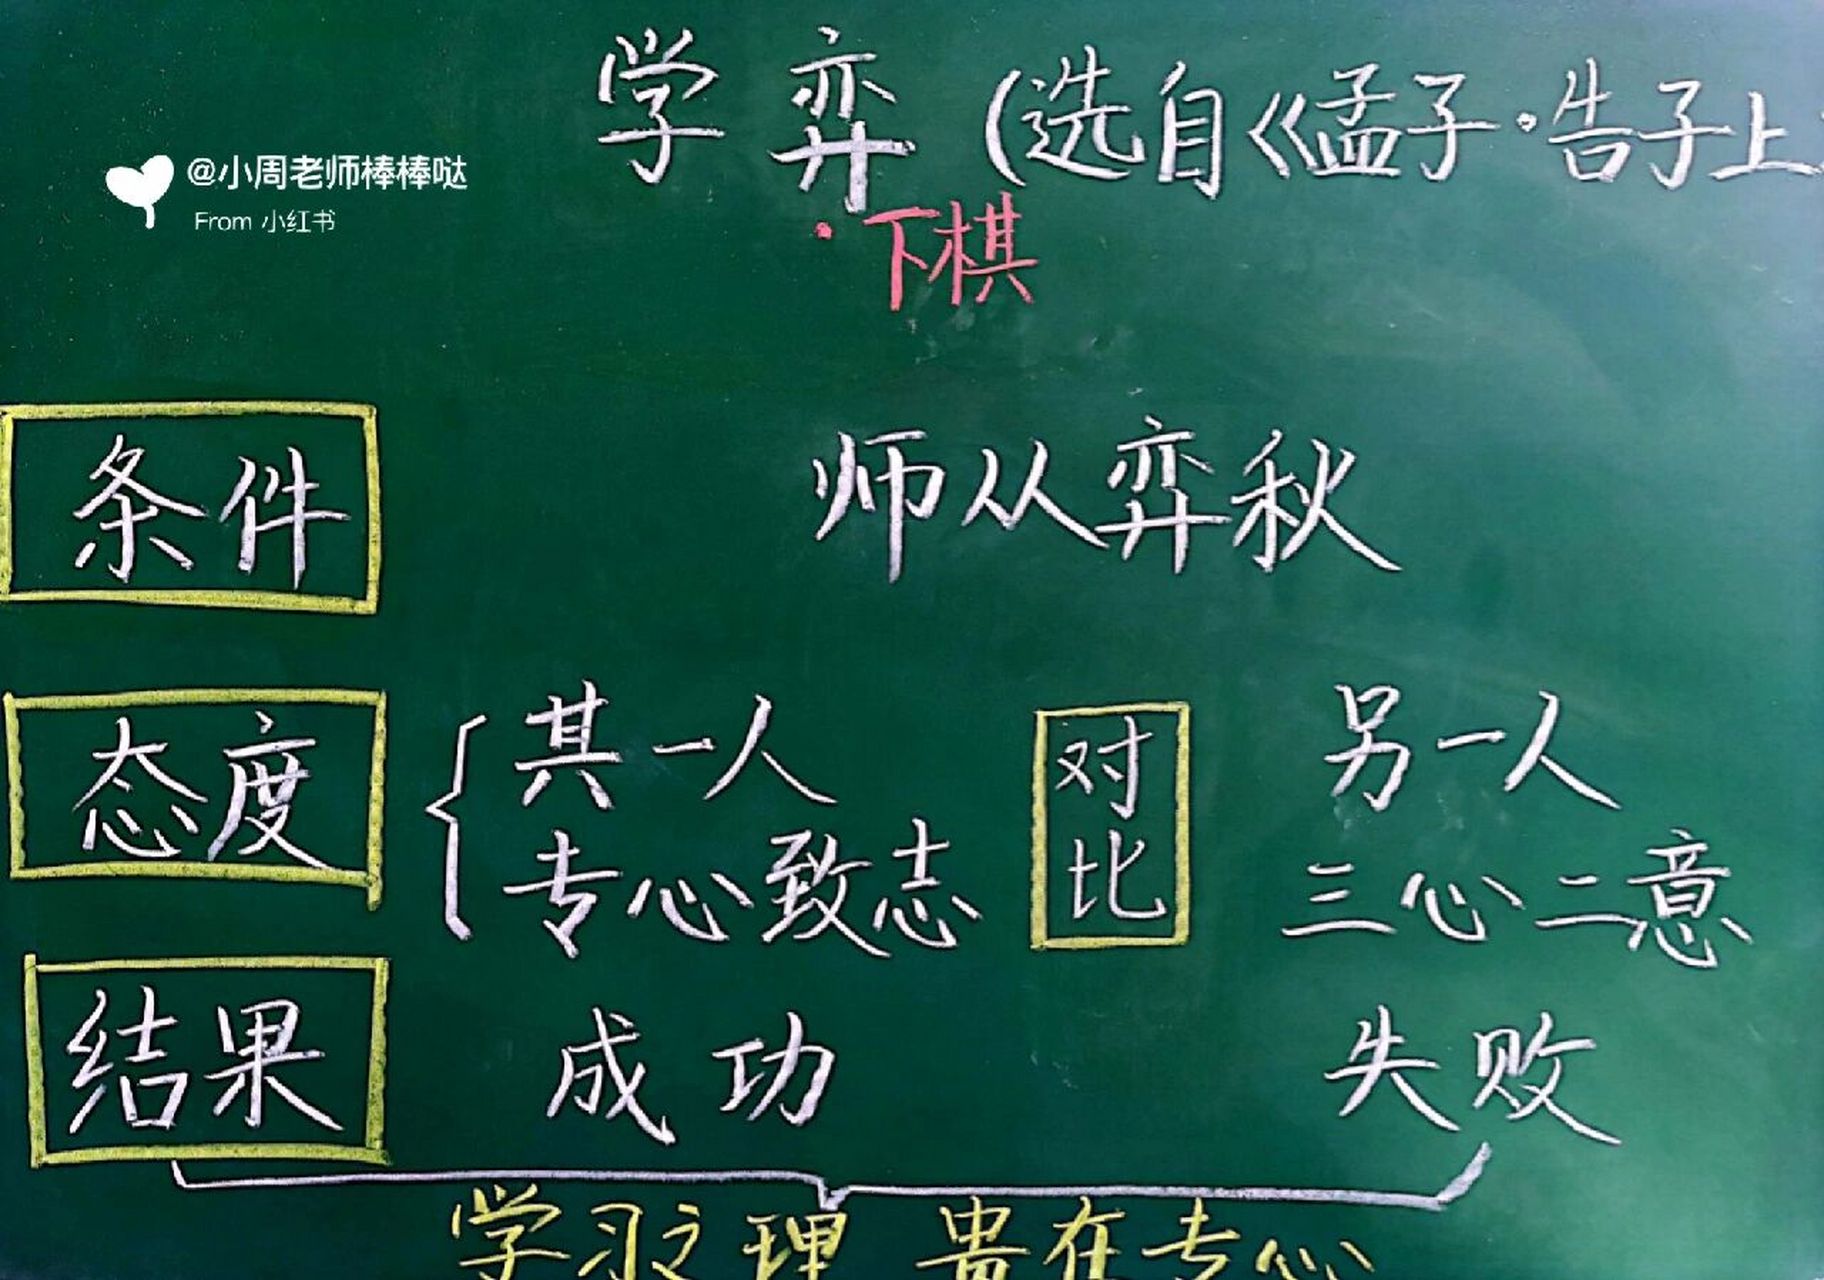 学弈(选自《孟子·告子上
@小周老师棒棒哒
From 小红书
下棋
条件 师从弈秋
态度 其一人 对比 另一人
专心致志 三心二意
结果 成功 失败
学习之理 贵在专心